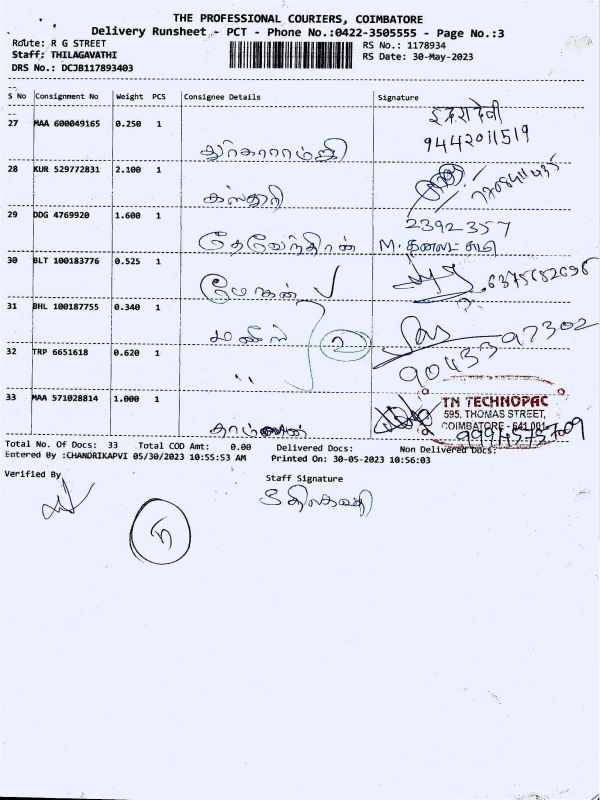 THE PROFESSIONAL COURIERS, COIMBATORE
Delivery Runsheet - PCT - Phone No.:0422-3505555 - Page No.:3
Route: R G STREET
RS No.: 1178934
Staff: THILAGAVATHI
RS Date: 30-May-2023
DRS No.: DCJB117893403
S No Consignment No Weight PCS Consignee Details Signature
27 MAA 600049165 0.250 1
9442011519
28 KUR 529772831 2.100 1
கஸ்தூரி
29 DDG 4769920 1.600 1
2392357
தேவேந்திரன்
30 BLT 100183776 0.525 1
மோகன்
31 BHL 100187755 0.340 1
மணிஷ்
2
32 TRP 6651618 0.620 1
9043397302
"
33 MAA 571028814 1.000 1
TN TECHNOPAC
595, THOMAS STREET,
COIMBATORE - 641 001
9994575709
Total No. Of Docs: 33 Total COD Amt: 0.00 Delivered Docs: Non Delivered Docs:
Entered By :CHANDRIKAPVI 05/30/2023 10:55:53 AM Printed On: 30-05-2023 10:56:03
Verified By
Staff Signature